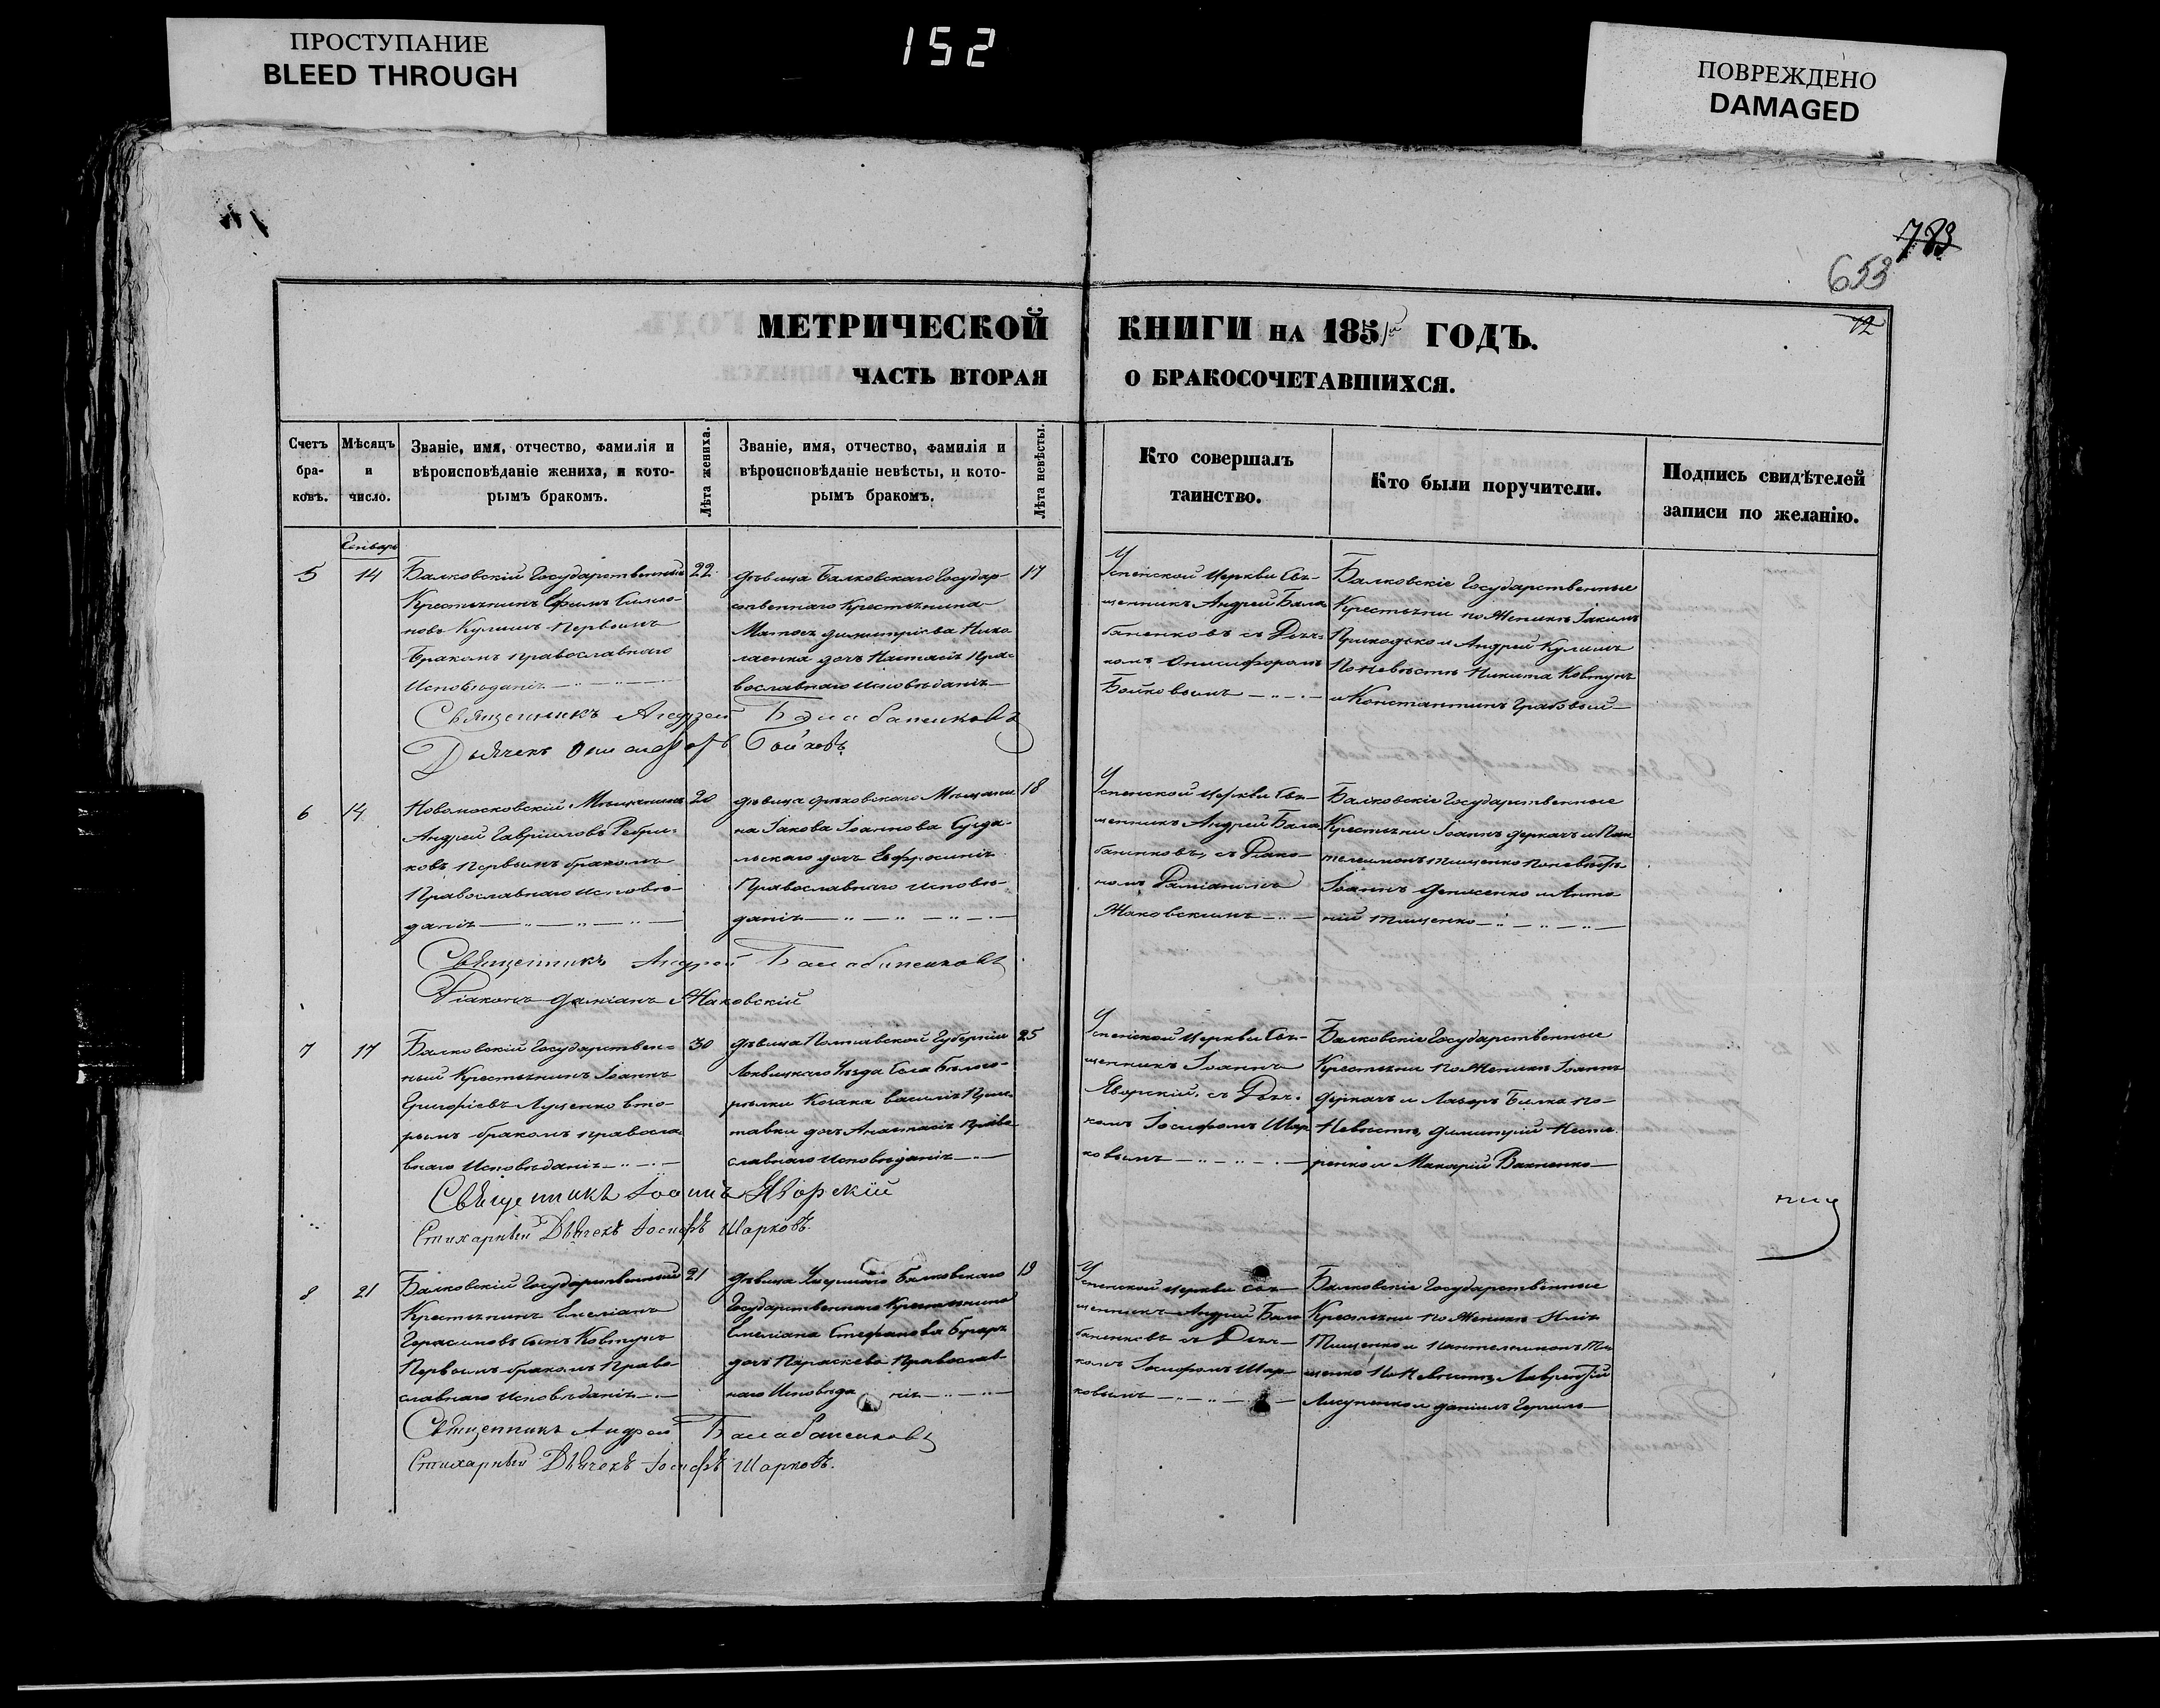 ПРОСТУПАНИЕ
BLEED THROUGH
152
ПОВРЕЖДЕНО
DAMAGED
783
653
72
МЕТРИЧЕСКОЙ КНИГИ НА 1851й ГОДЪ.
ЧАСТЬ ВТОРАЯ О БРАКОСОЧЕТАВШИХСЯ.
Счетъ браковъ.
Мѣсяцъ и число.
Званіе, имя, отчество, фамилія и
вѣроисповѣданіе жениха, и кото-
рымъ бракомъ.
Лѣта жениха.
Званіе, имя, отчество, фамилія и
вѣроисповѣданіе невѣсты, и кото-
рымъ бракомъ.
Лѣта невѣсты.
Кто совершалъ
таинство.
Кто были поручители.
Подпись свидѣтелей
записи по желанію.
5
14
Балковскій Государственный
Крестьянинъ Ефимъ
Кулишъ первымъ
Бракомъ православнаго
Исповѣданія
22
дѣвица Балковскаго Государ-
ственнаго Крестьянина
дочь Настасія Пра-
вославнаго исповѣданія
17
Успенской Церкви Свя-
щенникъ Андрей Бала
баненковъ съ Дьяч-
комъ Онисифоромъ
Бойковымъ
Балковскіе Государственные
Крестьяне по Женихѣ Іакимъ
Приходько и Андрей Кулишъ
По Невѣстѣ Никита Ковтунъ
и Константинъ Грабовый
Священникъ Андрей Балабаненковъ
Дьячекъ Онисифоръ Бойковъ
6
14
Новомосковскій Мѣщанинъ
Андрей Гавріиловъ Ребри-
ковъ Первымъ бракомъ
Православнаго исповѣ-
данія
20
дѣвица Мѣщани
на Іакова Іоаннова Сузда-
льскаго дочь Евфросинія
Православнаго исповѣ-
данія
18
Успенской Церкви Свя-
щенникъ Андрей Бала
баненковъ, съ Діако-
номъ Даміаномъ
Жаковскимъ
Балковскіе Государственные
Крестьяне Іоаннъ Деркачъ и Пан
телеимонъ Тищенко
Іоаннъ Денисенко и Анто
ній Тищенко
Священникъ Андрей Балабаненковъ
Діаконъ Даміанъ Жаковскій
7
17
Балковскій Государствен-
ный Крестьянинъ Іоаннъ
Григоріевъ Луценко вто-
рымъ бракомъ правосла-
внаго Исповѣданія
30
дѣвица Полтавской Губерніи
Лохвицкаго Уѣзда Села
Козака Василія
дочь Анастасія Право
славнаго Исповѣданія
25
Успенской Церкви Свя-
щенникъ Іоаннъ
Яворскій, съ Дьяч-
комъ Іосифомъ Шар
ковымъ
Балковскіе Государственные
Крестьяне по Женихѣ Іоаннъ
Деркачъ и Лазарь Билка по
Невѣстѣ, Димитрій
и Макарій Вакненко
Священникъ Іоаннъ Яворскій
Стихарный Дьячекъ Іосифъ Шарковъ.
8
21
Балковскій Государственный
Крестьянинъ Емеліанъ
Герасимовъ сынъ Ковтунъ
Первымъ бракомъ Право
славнаго Исповѣданія
21
дѣвица Умершаго Балковскаго
Государственнаго Крестьянина
Емеліана Стефанова
дочь Параскева Православ-
наго Исповѣданія
19
Успенской Церкви Свя-
щенникъ Андрей Бала
баненковъ съ Дьяч-
комъ Іосифомъ Шар-
ковымъ
Балковскіе Государственные
Крестьяне по Женихѣ Илія
Тищенко и Пантелеимонъ Ти
щенко По Невѣстѣ Лаврентій
и Даніилъ
Священникъ Андрей Балабаненковъ
Стихарный Дьячекъ Іосифъ Шарковъ.